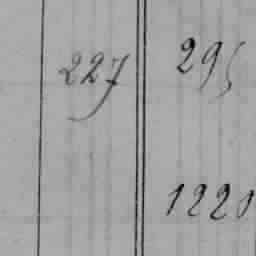 227 295
1220